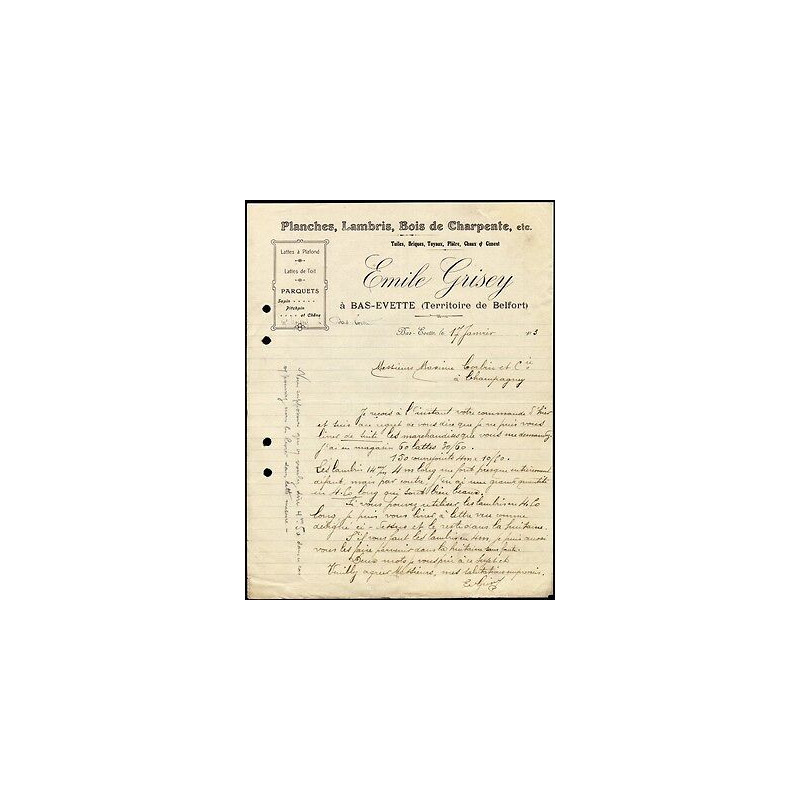 Planches, Lambris, Bois de Charpente, etc.
Tuiles, Briques, Tuyaux, Plâtre, Chaux & Ciment
Lattes à Plafond
Lattes de Toit
PARQUETS
Sapin
Pitchpin
et Chêne
Emile Grisey
à BAS-EVETTE (Territoire de Belfort)
Bas-Evette, le 17 Janvier 3
Messieurs Maxime Corbin et Cie
à Champagney
Je reçois à l'instant votre commande d'hier
et suis au regret de vous dire que je ne puis vous
livrer de suite les marchandises que vous me demandez
J'ai en magasin 60 lattes 30/60.
150 4m 10/60.
Les lambris 4m long me font presque entièrement
défaut, mais par contre j'en ai une grande quantité
en 4.50 long qui sont bien beaux.
Si vous pouvez utiliser les lambris en 4.50
long, je puis vous livrer à lettre vue comme
désigné ci-dessus et le reste dans la huitaine.
S'il vous faut les lambris en 4m, je puis aussi
vous les faire parvenir dans la huitaine sans faute.
Deux mots je vous prie à ce sujet et
Veuillez agréer Messieurs, mes salutations empressées.